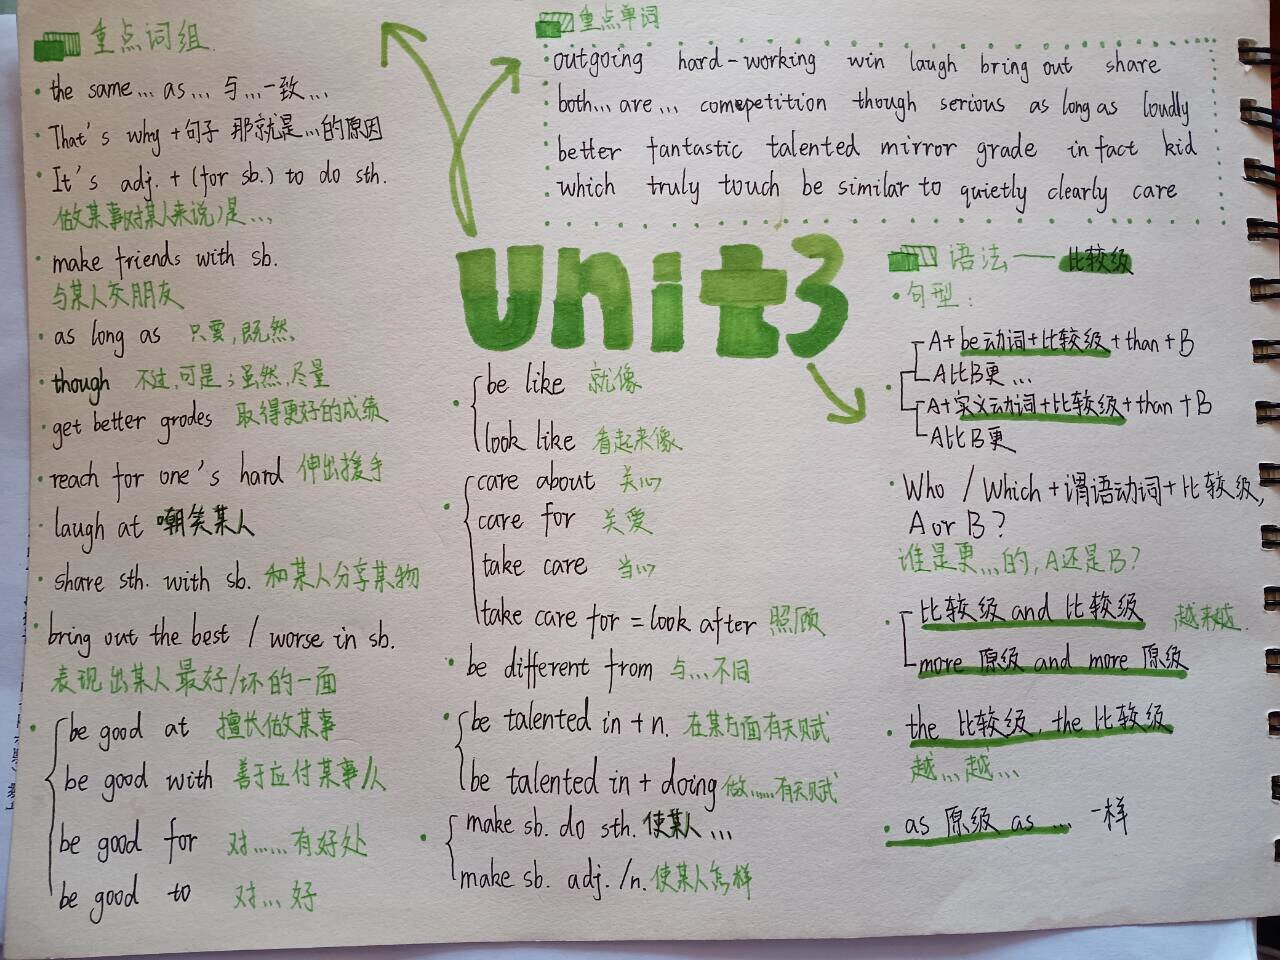 重点词组
the same... as... 与...一致...
That's why + 句子 那就是...的原因
It's adj. + (for sb.) to do sth.
做某事(对某人来说)是...
make friends with sb.
与某人交朋友
as long as 只要,既然
though 不过,可是;虽然,尽量
get better grodes 取得更好的成绩
reach for one's hard 伸出援手
laugh at 嘲笑某人
share sth. with sb. 和某人分享某物
bring out the best / worse in sb.
表现出某人最好/坏的一面
be good at 擅长做某事
be good with 善于应付某事/人
be good for 对......有好处
be good to 对...好
重点单词
outgoing hard-working win laugh bring out share
both... are... comepetition though serious as long as loudly
better fantastic talented mirror grade in fact kid
which truly touch be similar to quietly clearly care
Unit3
be like 就像
look like 看起来像
care about 关心
care for 关爱
take care 当心
take care for = look after 照顾
be different from 与...不同
be talented in + n. 在某方面有天赋
be talented in + doing 做......有天赋
make sb. do sth. 使某人...
make sb. adj. /n. 使某人怎样
语法——比较级
句型:
A + be动词 + 比较级 + than + B
A比B更...
A + 实义动词 + 比较级 + than + B
A比B更
Who / Which + 谓语动词 + 比较级,
A or B?
谁是更...的,A还是B?
比较级 and 比较级 越来越
more 原级 and more 原级
the 比较级, the 比较级
越...越...
as 原级 as ... 一样